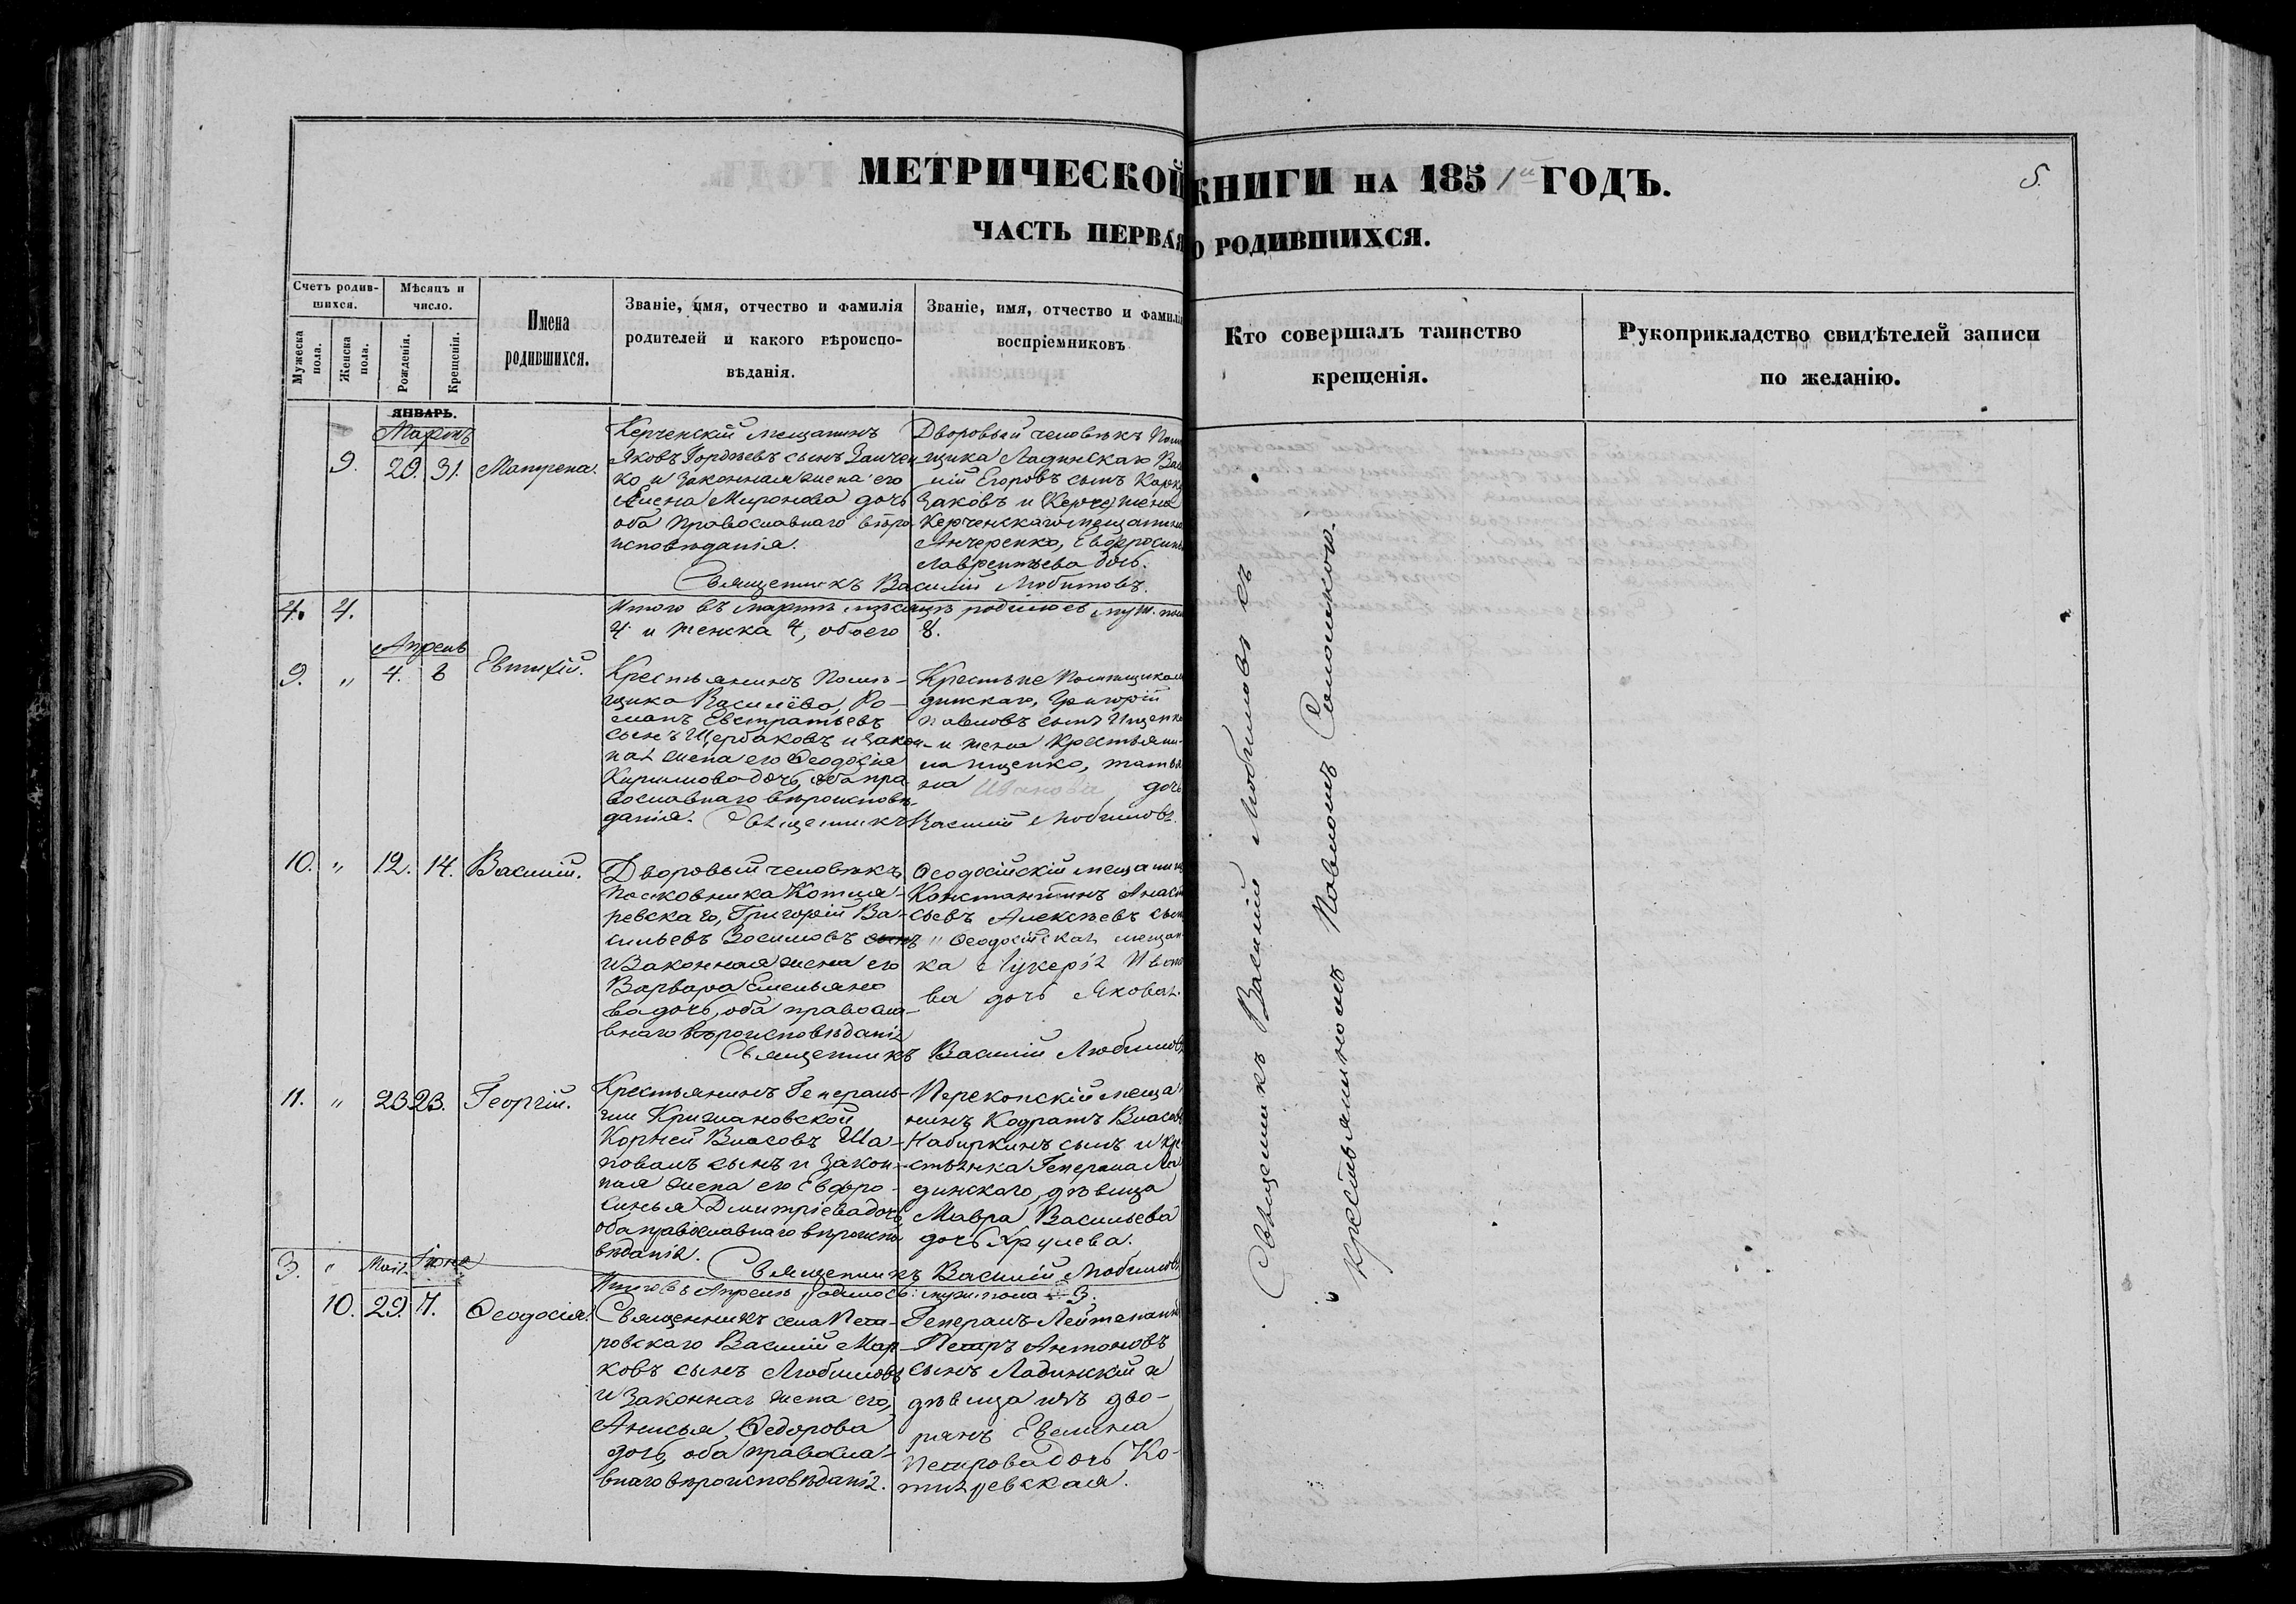 МЕТРИЧЕСКОЙ КНИГИ НА 1851й ГОДЪ.
5.
ЧАСТЬ ПЕРВАЯ О РОДИВШИХСЯ.
Счетъ родив-
шихся.
Мужеска
пола.
Женска
пола.
Мѣсяцъ и
число.
Рожденія.
Крещенія.
Имена
родившихся.
Званіе, имя, отчество и фамилія
родителей и какого вѣроиспо-
вѣданія.
Званіе, имя, отчество и фамилія
воспріемниковъ
Кто совершалъ таинство
крещенія.
Рукоприкладство свидѣтелей записи
по желанію.
ЯНВАРЬ.
Мартъ
9. 29. 31. Матрена.
Керченскій мещанинъ
Яковъ Гордѣевъ сынъ
ко и законная жена его
Миронова дочь
оба православнаго вѣро
исповѣданія.
Дворовый человѣкъ
щика Ладинскаго
Егоровъ сынъ
заковъ и жена
Керченскаго мещанина
Лаврентьева дочь.
Священникъ Василій Любимовъ.
4. 4.
Итого въ мартѣ мѣсяцѣ родилось муж. пола
4 и женска 4, обоего 8.
Апрель
9. " 4. 6 Евтихій.
Крестьянинъ Помѣ-
щика Ро-
манъ Евстратьевъ
сынъ Щербаковъ и закон-
ная жена его Ѳеодосія
Кирилова дочь, оба пра
вославнаго вѣроисповѣ-
данія.
Крестьяне Помѣщика Ла
динскаго, Григорій
Павловъ сынъ Ищенко
и жена крестьяни-
на Ищенко, Татья
на Иванова дочь
Священникъ Василій Любимовъ.
10. " 12. 14. Василій.
Дворовый человѣкъ
Полковника Котля-
ревскаго, Григорій Ва-
сильевъ Зосимовъ сынъ
и Законная жена его
Варвара Емельяно
ва дочь, оба правосла-
внаго вѣроисповѣданія
Ѳеодосійскій мещанинъ
Константинъ
сьевъ Алексѣевъ сынъ
и Ѳеодосійская мещан
ка Лукерія Ивано
ва дочь
Священникъ Василій Любимовъ
11. " 23. 23. Георгій.
Крестьянинъ Генераль-
ши
Корней Власовъ Ша-
повалъ сынъ и закон-
ная жена его Евфро-
синья Дмитріева дочь,
оба православнаго вѣроиспо
вѣданія.
Перекопскій меща
нинъ Кодратъ Власовъ
Набиркинъ сынъ и кре
стьянка Генерала Ла
динскаго, дѣвица
Мавра Васильева
дочь Хрулева.
Священникъ Василій Любимовъ
3. " Май. Іюнь
Итого въ Апрелѣ родилось: муж. пола 3.
10. 29. Ѳеодосія.
Священникъ села Пет-
ровскаго Василій Мар-
ковъ сынъ Любимовъ
и Законная жена его,
Анисья Ѳедорова
дочь, оба правосла-
внаго вѣроисповѣданія.
Генералъ-Лейтенантъ
Петръ Антоновъ
сынъ Ладинскій и
дѣвица изъ дво-
рянъ Евелина
Петрова дочь Ко-
тляревская.
Священникъ Василій Любимовъ съ
крестьяниномъ Павломъ